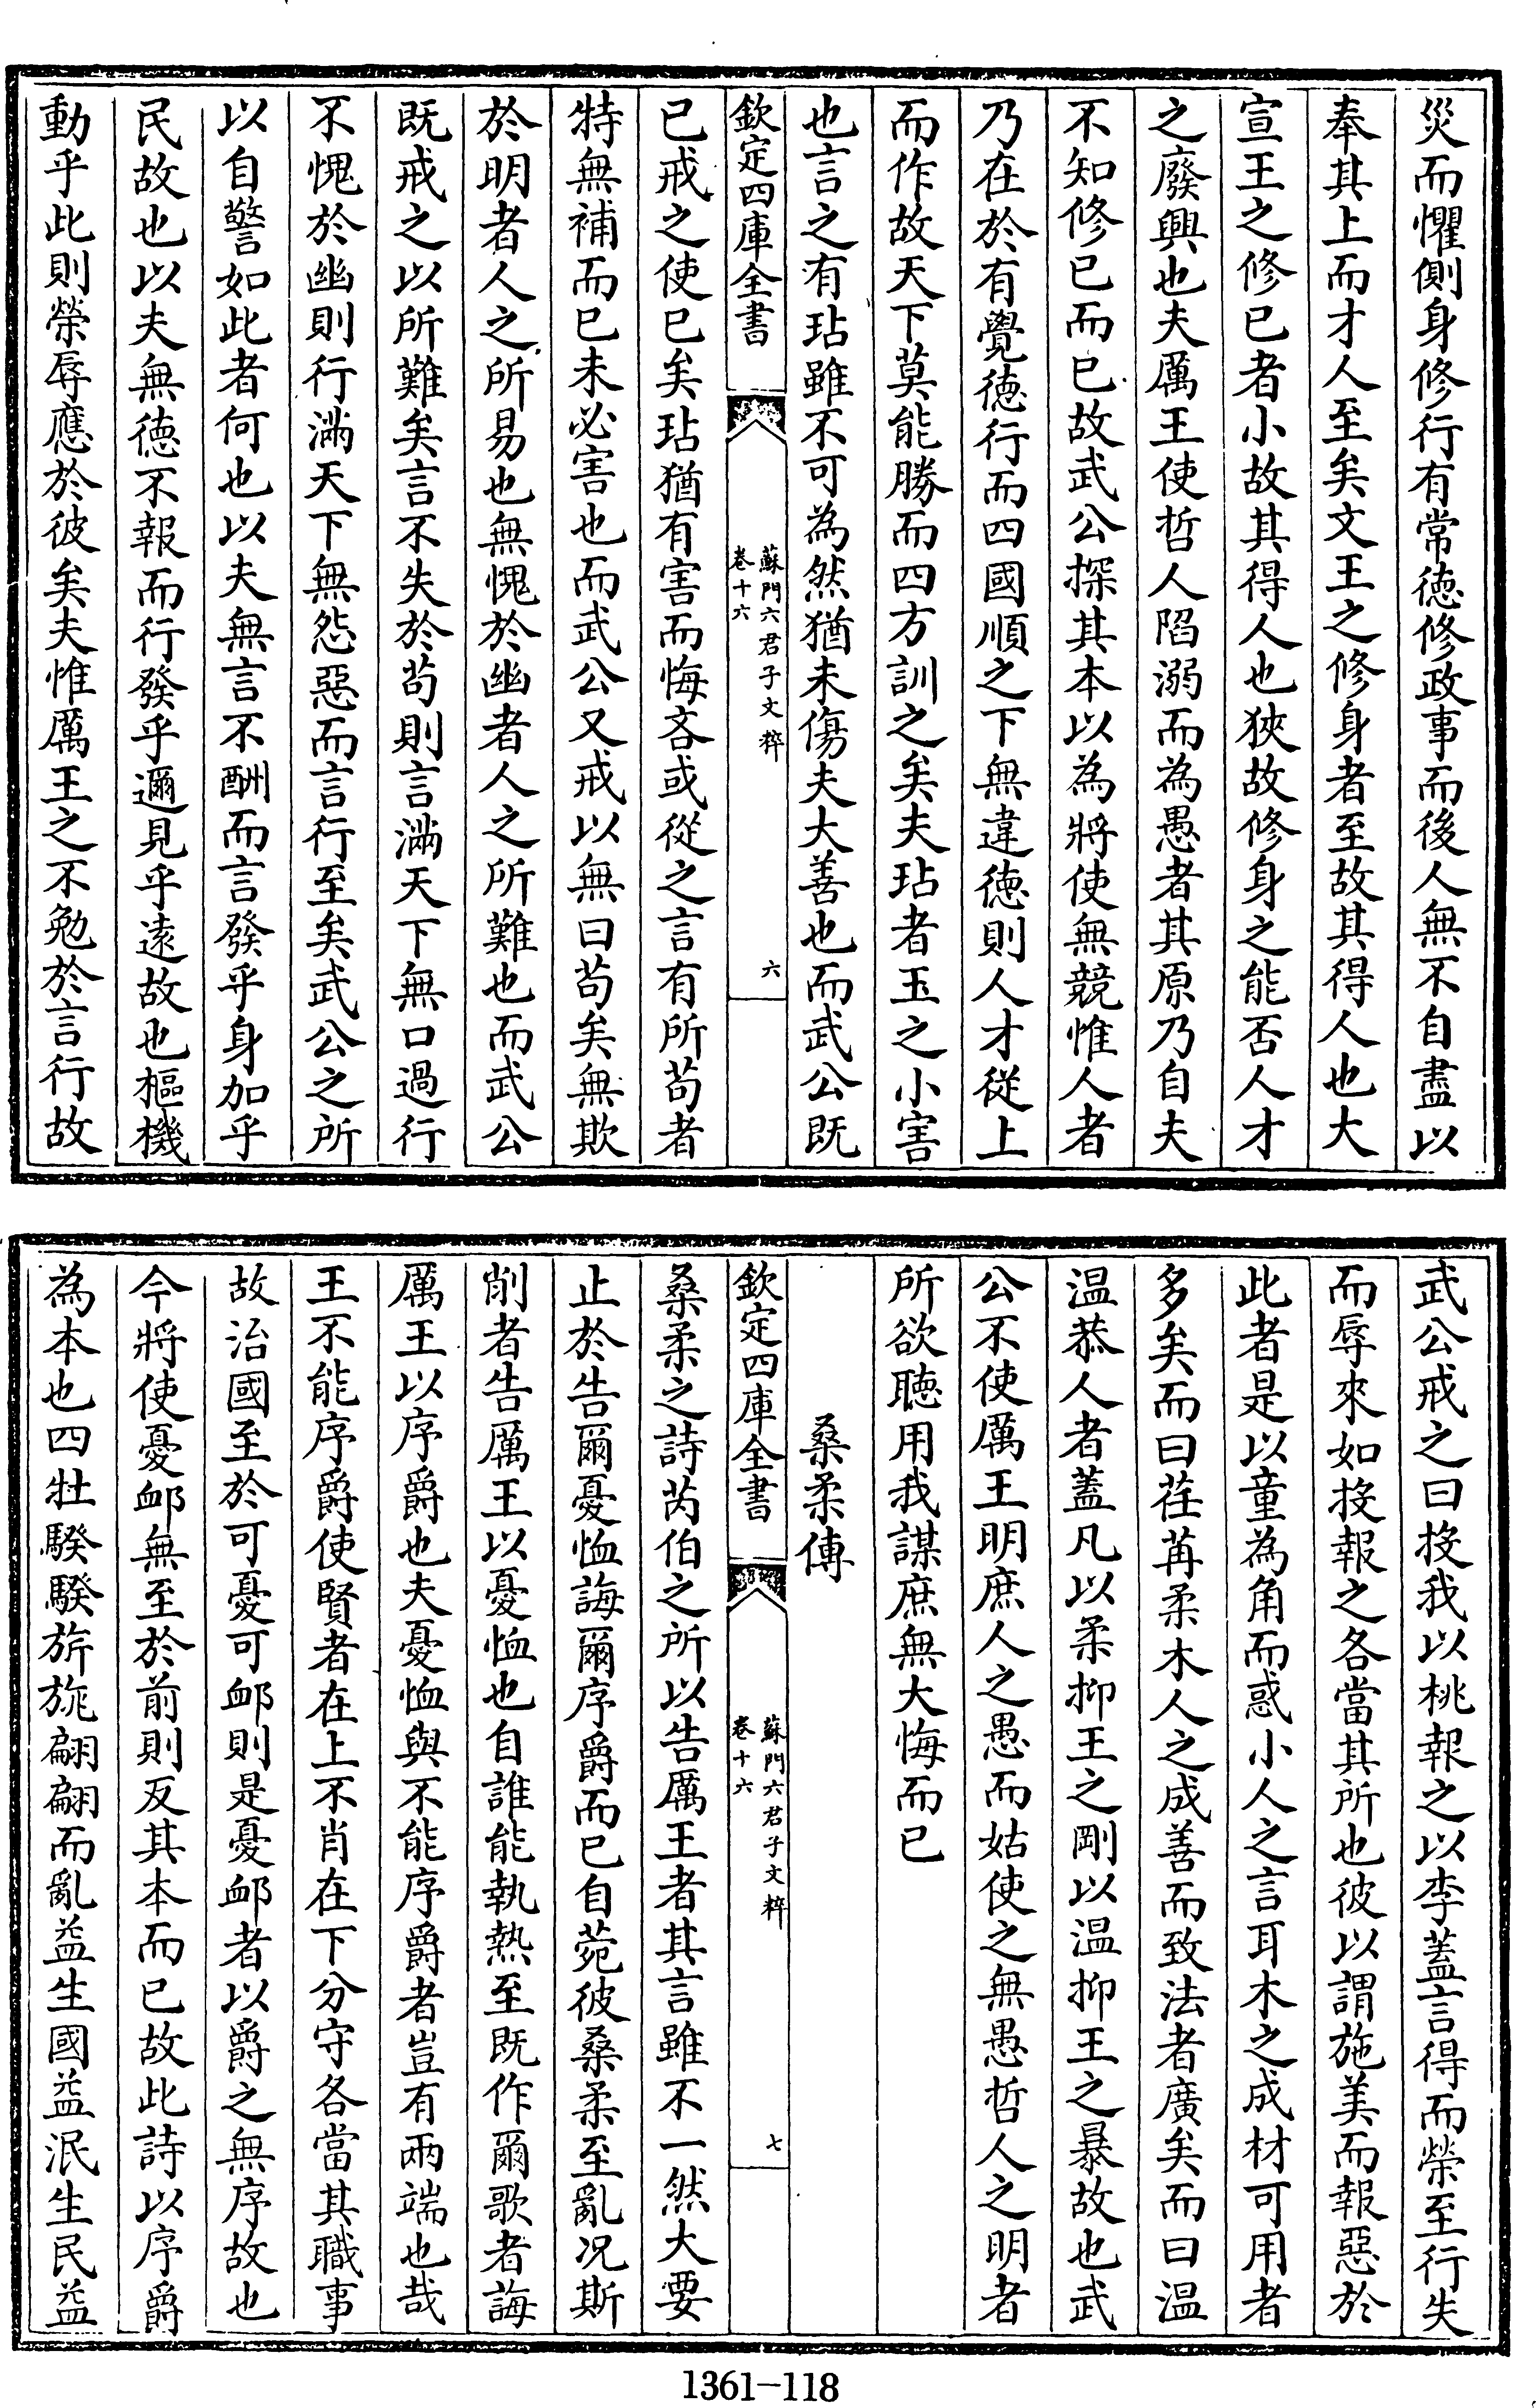 災而懼側身修行有常徳修政事而後人無不自盡以
奉其上而才人至矣文王之修身者至故其得人也大
宣王之修已者小故其得人也狹故修身之能否人才
之廢興也夫厲王使哲人陷溺而為愚者其原乃自夫
不知修已而已故武公探其本以為將使無競惟人者
乃在於有覺徳行而四國順之下無違徳則人才從上
而作故天下莫能勝而四方訓之矣夫玷者玉之小害
也言之有玷雖不可為然猶未傷夫大善也而武公既
欽定四庫全書
蘇門六君子文粹
卷十六
六
已戒之使已矣玷猶有害而悔吝或從之言有所茍者
特無補而已未必害也而武公又戒以無曰茍矣無欺
於明者人之所易也無愧於幽者人之所難也而武公
既戒之以所難矣言不失於茍則言滿天下無口過行
不愧於幽則行滿天下無怨惡而言行至矣武公之所
以自警如此者何也以夫無言不酬而言發乎身加乎
民故也以夫無徳不報而行發乎邇見乎遠故也樞機
動乎此則榮辱應於彼矣夫惟厲王之不勉於言行故
武公戒之曰投我以桃報之以李蓋言得而榮至行失
而辱來如投報之各當其所也彼以謂施美而報惡於
此者是以童為角而惑小人之言耳木之成材可用者
多矣而曰荏苒柔木人之成善而致法者廣矣而曰温
温恭人者蓋凡以柔抑王之剛以温抑王之暴故也武
公不使厲王明庶人之愚而姑使之無愚哲人之明者
所欲聴用我謀庶無大悔而已
桑柔傳
欽定四庫全書
蘇門六君子文粹
卷十六
七
桑柔之詩芮伯之所以告厲王者其言雖不一然大要
止於告爾憂恤誨爾序爵而已自菀彼桑柔至亂况斯
削者告厲王以憂恤也自誰能執熱至既作爾歌者誨
厲王以序爵也夫憂恤與不能序爵者豈有兩端也哉
王不能序爵使賢者在上不肖在下分守各當其職事
故治國至於可憂可䘏則是憂䘏者以爵之無序故也
今將使憂䘏無至於前則反其本而已故此詩以序爵
為本也四牡騤騤旂旐翩翩而亂益生國益泯生民益
1361-118